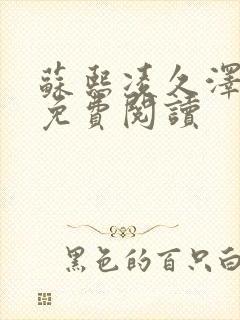 蘇熙凌久澤
免費閱讀
黑色的百只白